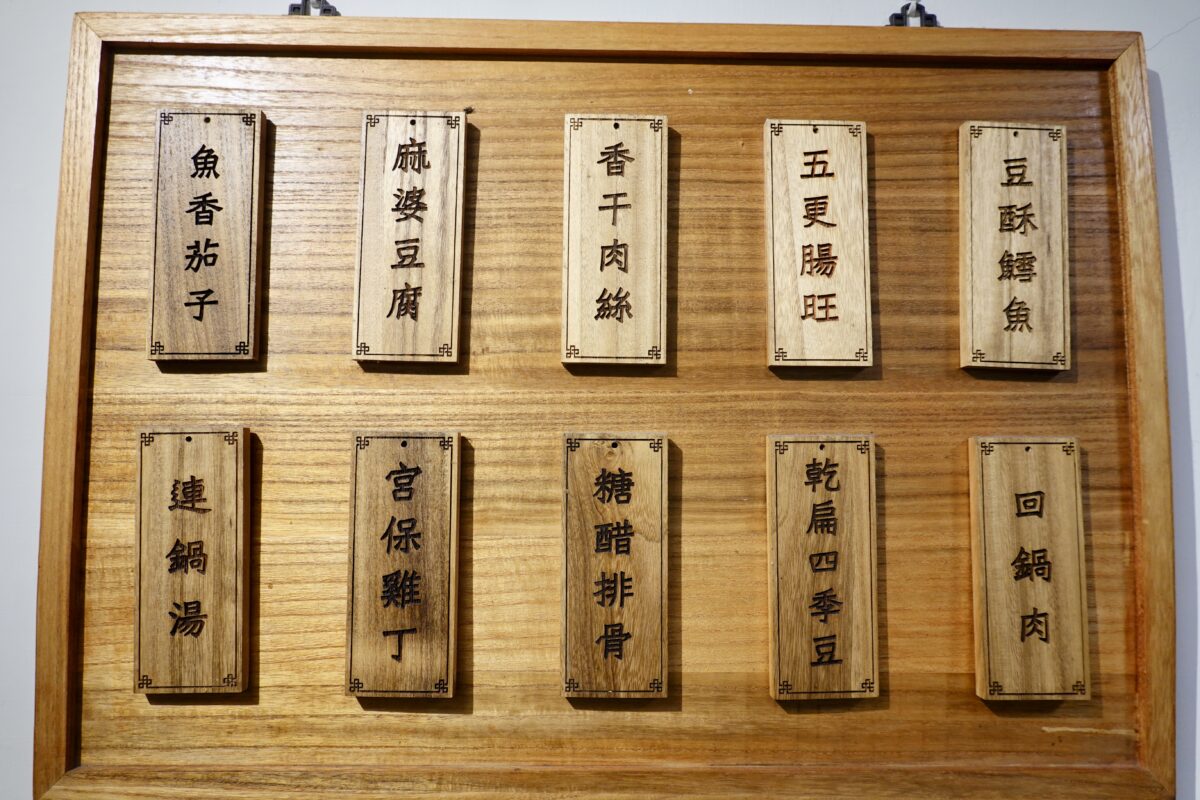 豆酥鱈魚
五更腸旺
香干肉絲
麻婆豆腐
魚香茄子
回鍋肉
乾扁四季豆
糖醋排骨
宮保雞丁
連鍋湯